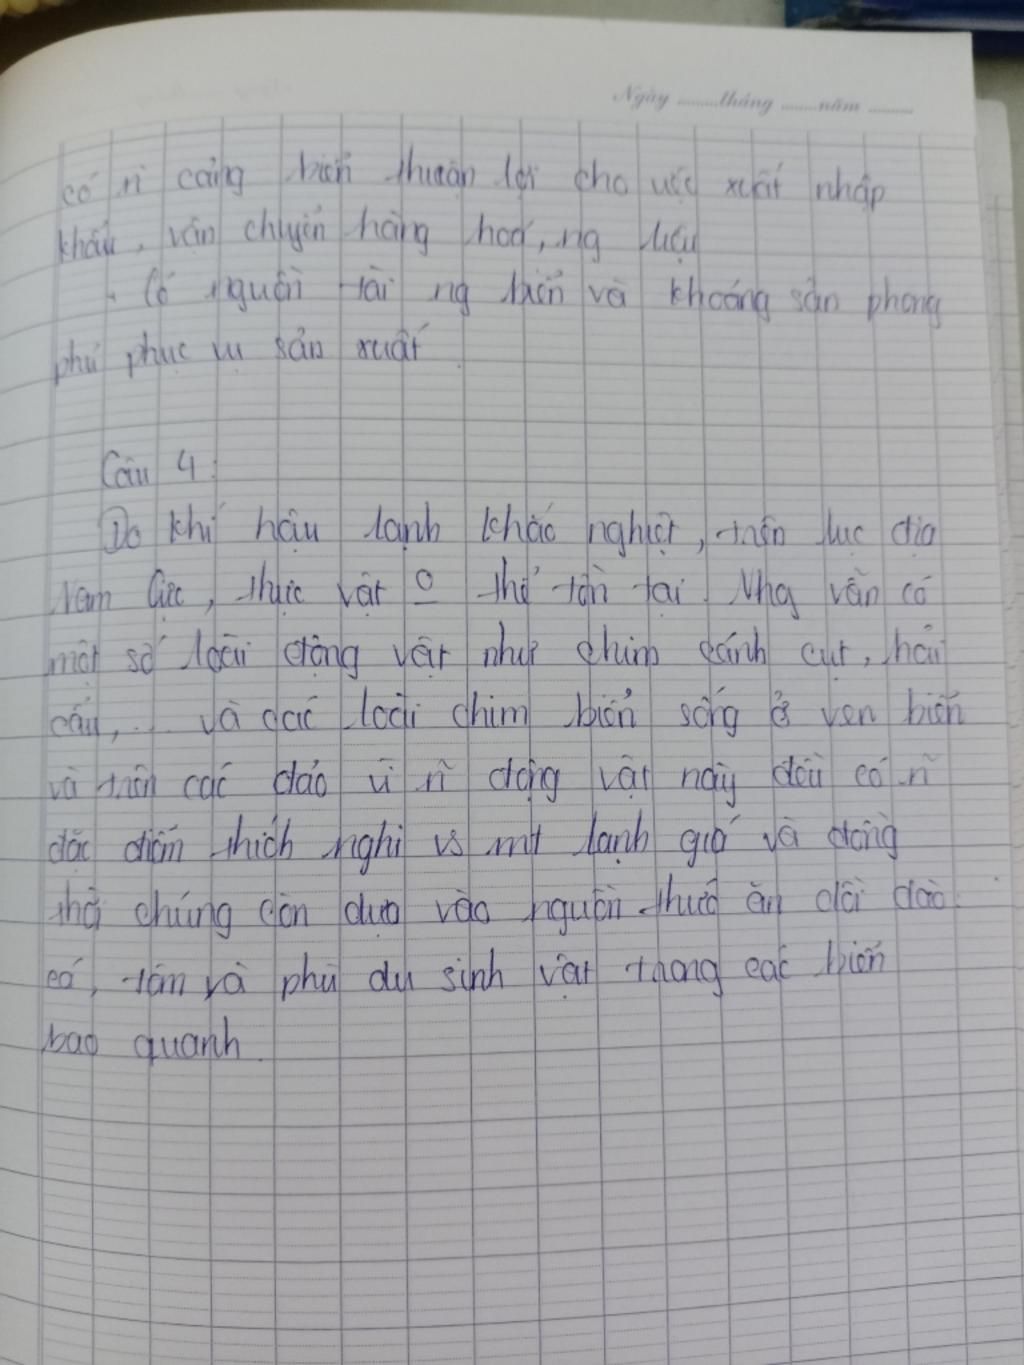 Ngày ........tháng .......năm .........
có n̄ cảng biển thuận lợi cho việc xuất nhập
khẩu, vận chuyển hàng hoá, ng liệu
- Có nguồn tài ng biển và khoáng sản phong
phú phục vụ sản xuất
Câu 4:
Do khí hậu lạnh khắc nghiệt, trên lục địa
Nam Cực, thực vật o thể tồn tại. Nhg vẫn có
một số loài động vật như chim cánh cụt, hải
cẩu,... và các loài chim biển sống ở ven biển
và trên các đảo vì n̄ động vật này đều có n̄
đặc điểm thích nghi vs mt lạnh giá và đồng
thời chúng còn dựa vào nguồn thức ăn dồi dào
cá, tôm và phù du sinh vật trong các biển
bao quanh.